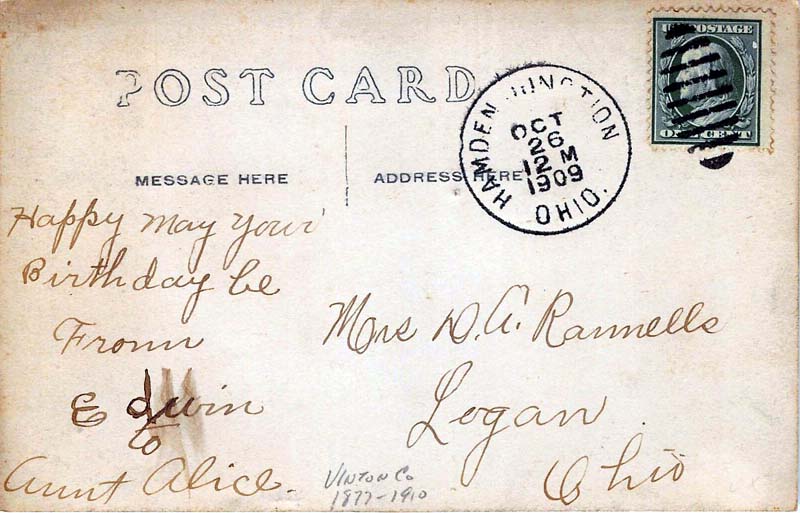 POST CARD
MESSAGE HERE
ADDRESS HERE
HAMDEN JUNCTION
OCT
26
12 M
1909
OHIO.
U.S. POSTAGE
ONE CENT
Happy may your
Birthday be
From
Edwin
to
Aunt Alice.
Mrs D. A. Rannells
Logan
Ohio
VINTON CO
1877-1910